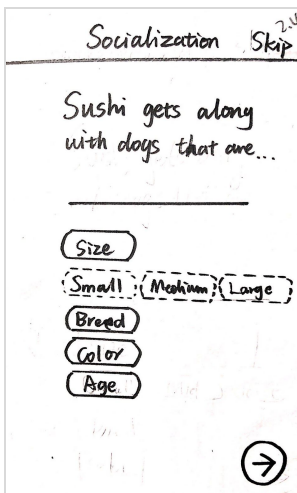 Socialization Skip
Sushi gets along
with dogs that are...
Size
Small Medium Large
Breed
Color
Age